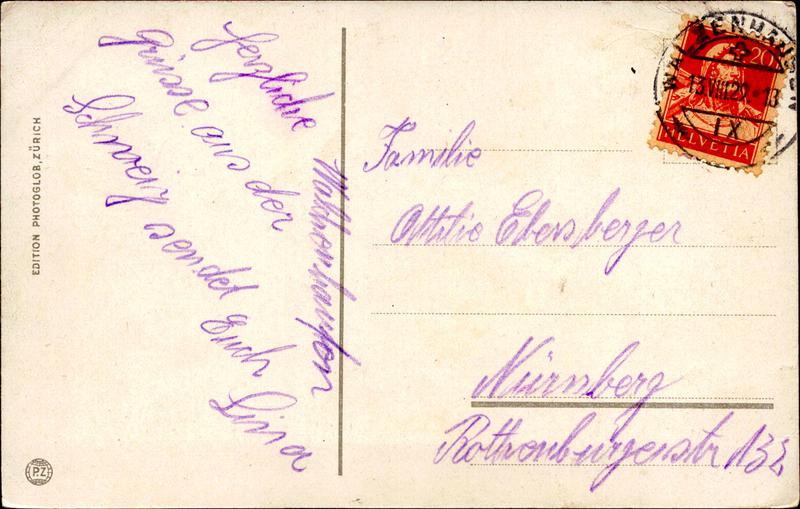 Herzliche
Grüsse aus der
Schweiz sendet Euch Lina
EDITION PHOTOGLOB, ZÜRICH
P.Z
Familie
Ottilie Ebersberger
Nürnberg
Rothenburgerstr 132
20
13.VIII.22
IX
HELVETIA